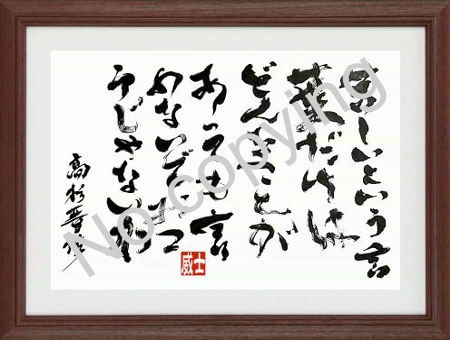 苦しいという言
葉だけは
どんなことが
あっても言
わないでおこ
うじゃないか
高杉晋作
威士
No copying